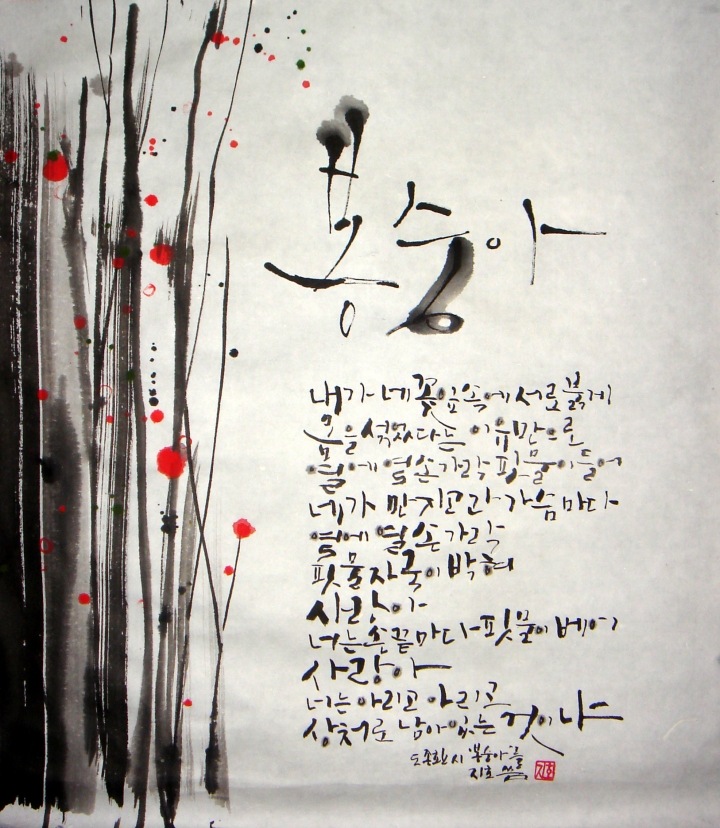 봉숭아
내가 네 꽃잎 속에 서로 붉게
몸을 섞었다는 이유만으로
열에 열 손가락 핏물이 들어
네가 만지고 간 가슴마다
열에 열 손가락
핏물자국이 박혀
사랑아
너는 손끝마다 핏물이 베어
사랑아
너는 아리고 아리고
상처로 남아있는 것이냐
도종환 시 '봉숭아'를
씀